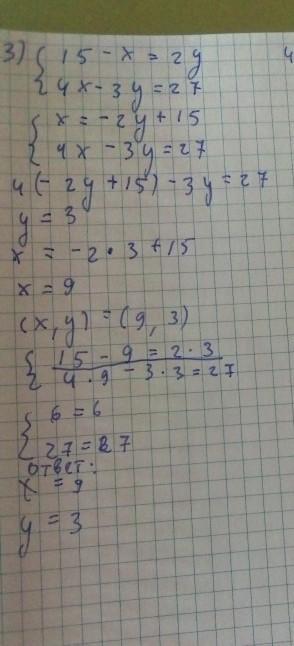 3) { 15 - x = 2y
4x - 3y = 27
{ x = -2y + 15
4x - 3y = 27
4(-2y + 15) - 3y = 27
y = 3
x = -2 · 3 + 15
x = 9
(x, y) = (9, 3)
{ 15 - 9 = 2 · 3
4 · 9 - 3 · 3 = 27
{ 6 = 6
27 = 27
ответ:
x = 9
y = 3
4